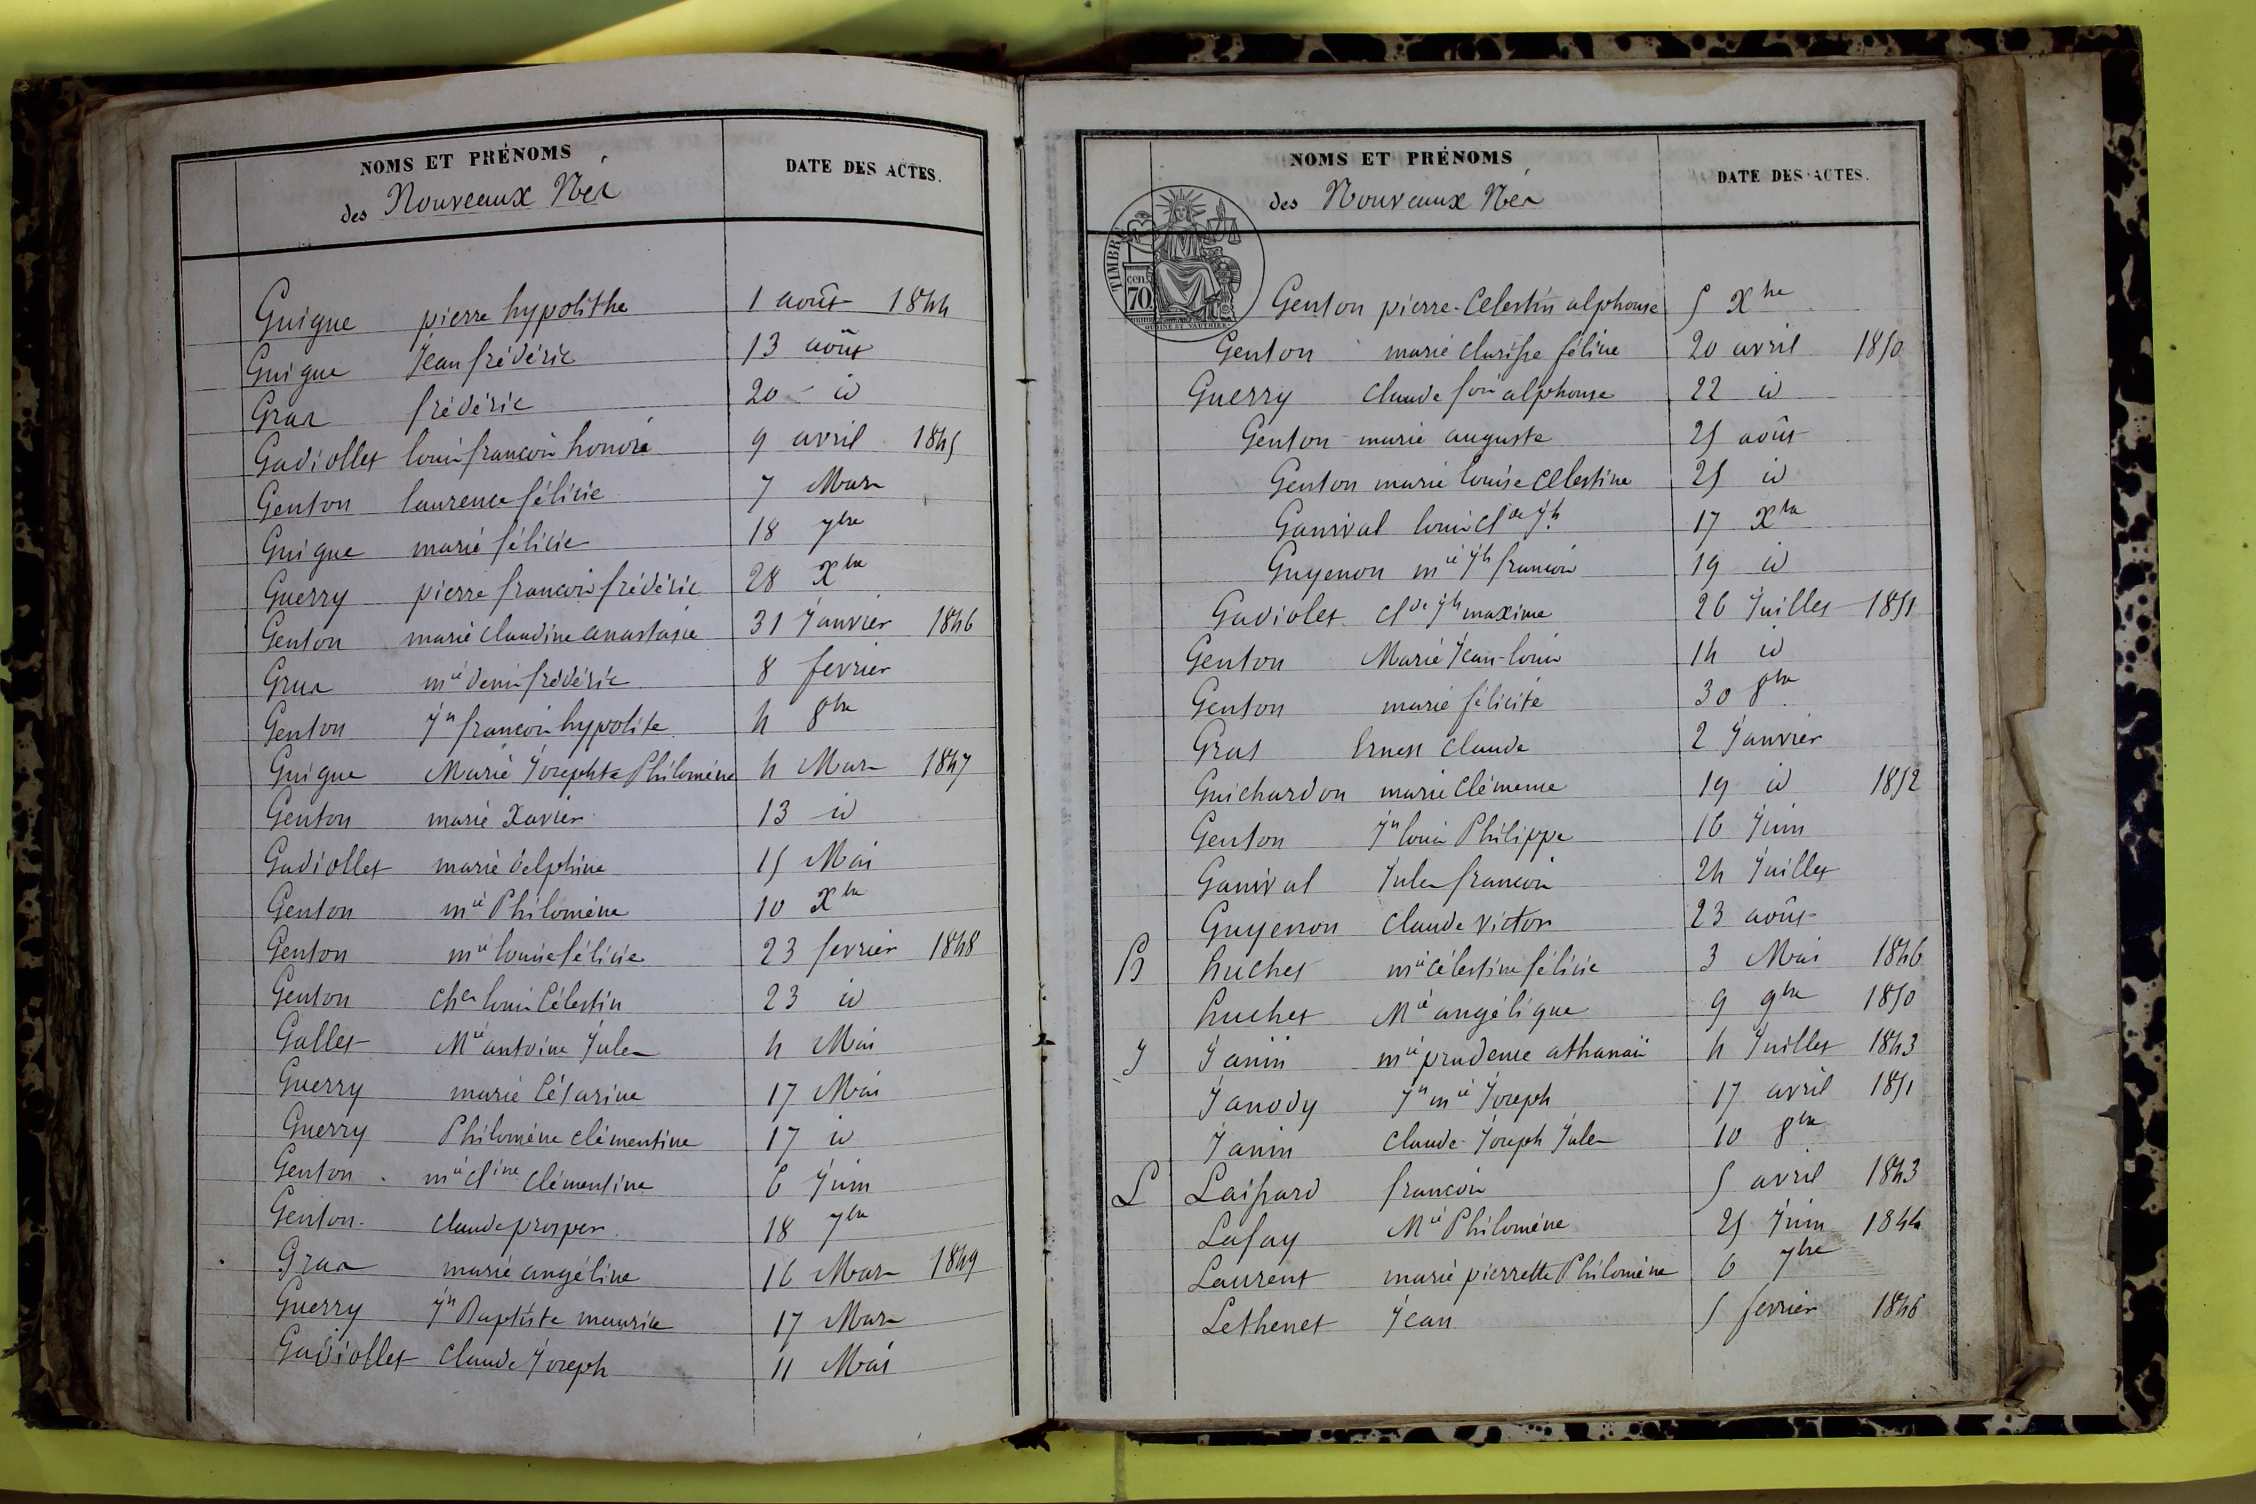 NOMS ET PRÉNOMS
des Nouveaux Nés
DATE DES ACTES.
Guigue pierre hypolithe 1 août 1844
Guigue Jean frédéric 13 août
Gras frédéric 20 id
Gadiollet louis françois honoré 9 avril 1845
Genton laurence félicie 7 Mars
Guigue marie félicie 18 7bre
Guerry pierre françois frédéric 28 Xbre
Genton marie claudine anastasie 31 Janvier 1846
Gras mie denis frédéric 8 fevrier
Genton Jn françois hypolite 4 8bre
Guigue Marie Josephte Philomène 4 Mars 1847
Genton marie Xavier 13 id
Gadiollet marie delphine 15 Mai
Genton mie Philomène 10 Xbre
Genton mie louise félicie 23 fevrier 1848
Genton Chles louis Célestin 23 id
Gallet Mie antoine Jules 4 Mai
Guerry marie Césarine 17 Mai
Guerry Philomène clémentine 17 id
Genton mie Cline Clémentine 6 Juin
Genton claude prosper 18 7bre
Gras marie angéline 16 Mars 1849
Guerry Jn Baptiste maurice 17 Mars
Gadiollet Claude Joseph 11 Mai
NOMS ET PRÉNOMS
des Nouveaux Nés
DATE DES ACTES.
TIMBRE
cen.
70
Genton pierre-Celestin alphonse 5 Xbre
Genton marie clarisse féline 20 avril 1850
Guerry Claude fois alphonse 22 id
Genton marie auguste 25 août
Genton marie louise Célestine 25 id
Ganival louis Clde Jh 17 Xbre
Guyenon mie Jh françois 19 id
Gadiolet Clde Jh maxime 26 Juillet 1851
Genton Marie Jean-louis 14 id
Genton marie félicité 30 8bre
Gras Ernest Claude 2 Janvier
Guichardon marie Clémence 19 id 1852
Genton Jn louis Philippe 16 Juin
Ganival Jules françois 24 Juillet
Guyenon Claude Victor 23 août
H huchet mie Célestine félicie 3 Mai 1846
huchet Mie angélique 9 9bre 1850
J Janin mie prudence athanaïs 4 Juillet 1843
Janody Jn mie Joseph 17 avril 1851
Janin Claude-Joseph Jules 10 8bre
L Laissard françois 5 avril 1843
Lafay Mie Philomène 25 Juin 1844
Laurent marie pierrette Philomène 6 7bre
Lethenet Jean 5 fevrier 1846